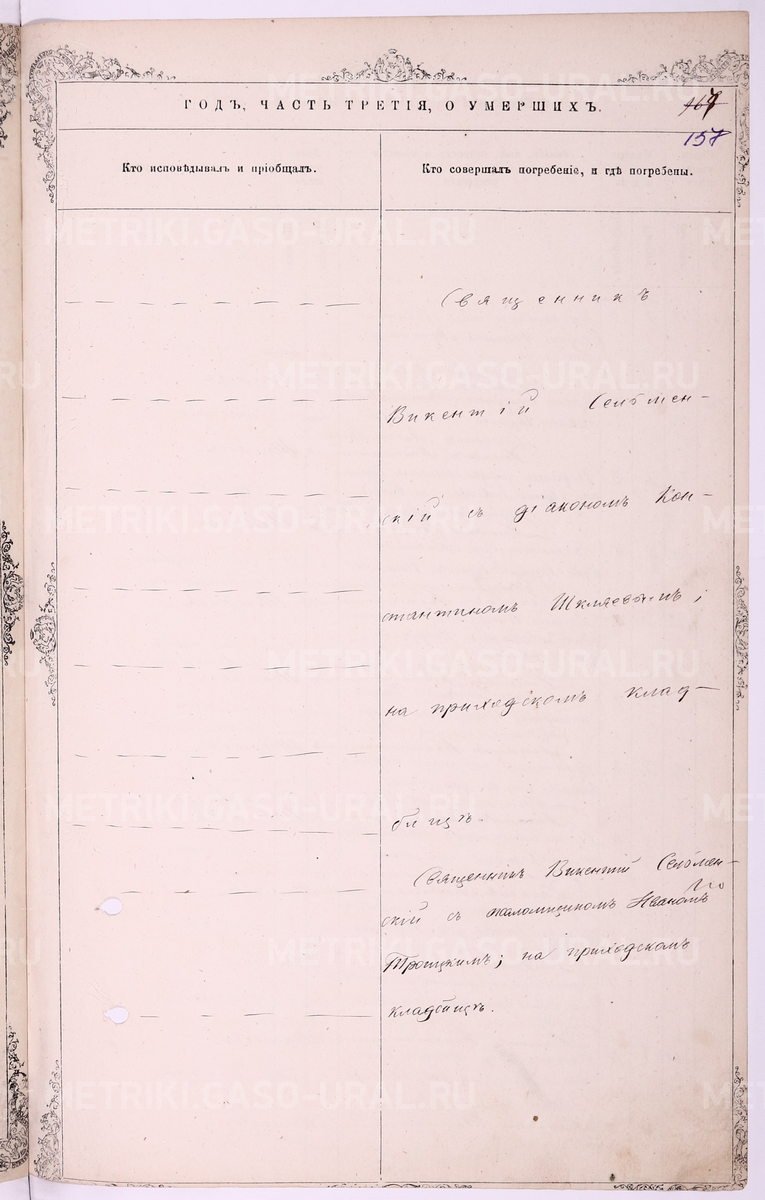 ГОДЪ, ЧАСТЬ ТРЕТІЯ, О УМЕРШИХЪ.
157
Кто исповѣдывалъ и пріобщалъ.
Кто совершалъ погребеніе, и гдѣ погребены.
Священникъ
Викентій Сельмен-
скій съ діакономъ Кон-
стантиномъ Шкляевымъ;
на приходскомъ клад-
бищѣ.
Священникъ Викентій Сельмен-
скій съ псаломщикомъ Иваномъ
Троицкимъ; на приходскомъ
кладбищѣ.
METRIKI.GASO-URAL.RU